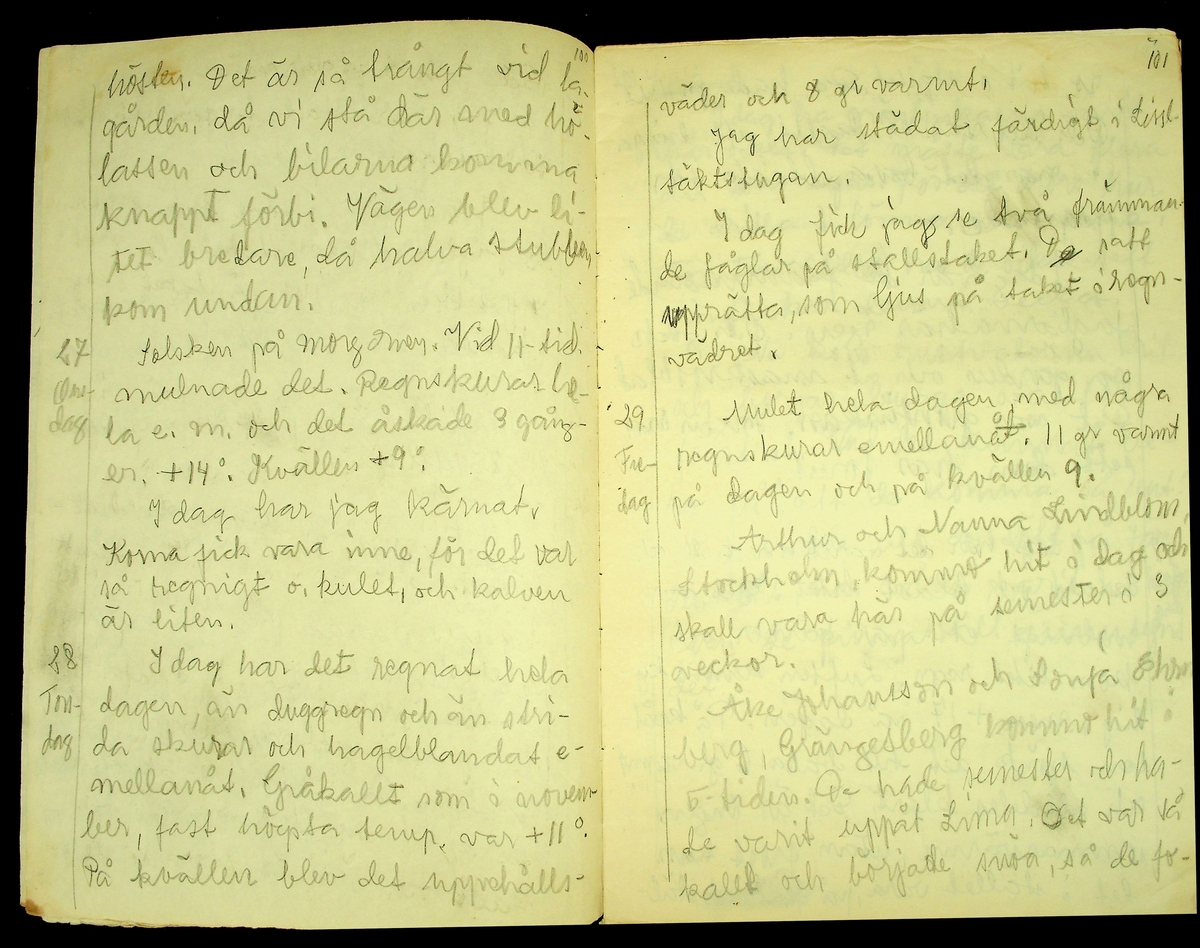 100
hösten. Det är så trångt vid la-
gården, då vi stå där med hö-
lassen och bilarna komma
knappt förbi. Vägen blev li-
tet bredare, då halva stubben
kom undan.
27 Solsken på morgonen. Vid 11-tid.
Ons- mulnade det. Regnskurar he-
dag la e. m. och det åskade 3 gång-
er. +14°. Kvällen +9°.
I dag har jag kärnat.
Korna fick vara inne, för det var
så regnigt o. kulet, och kalven
är liten.
28 I dag har det regnat hela
Tors- dagen, än duggregn och än stri-
dag da skurar och hagelblandat e-
mellanåt. Gråkallt som i novem-
ber, fast högsta temp. var +11°.
På kvällen blev det uppehålls-
101
väder och 8 gr varmt.
Jag har städat färdigt i Lissl-
täktstugan.
I dag fick jag se två främman-
de fåglar på stallstaket. De satt
upprätta, som ljus på taket i regn-
vädret.
29 Mulet hela dagen med några
Fre- regnskurar emellanåt. 11 gr varmt
dag på dagen och på kvällen 9.
Arthur och Nanna Lindblom,
Stockholm, kommo hit i dag och
skall vara här på semester i 3
veckor.
Åke Johansson och Sonja
berg, Grängesberg kommo hit i
5-tiden. De hade semester och ha-
de varit uppåt Lima. Det var så
kallt och började snöa, så de fo-